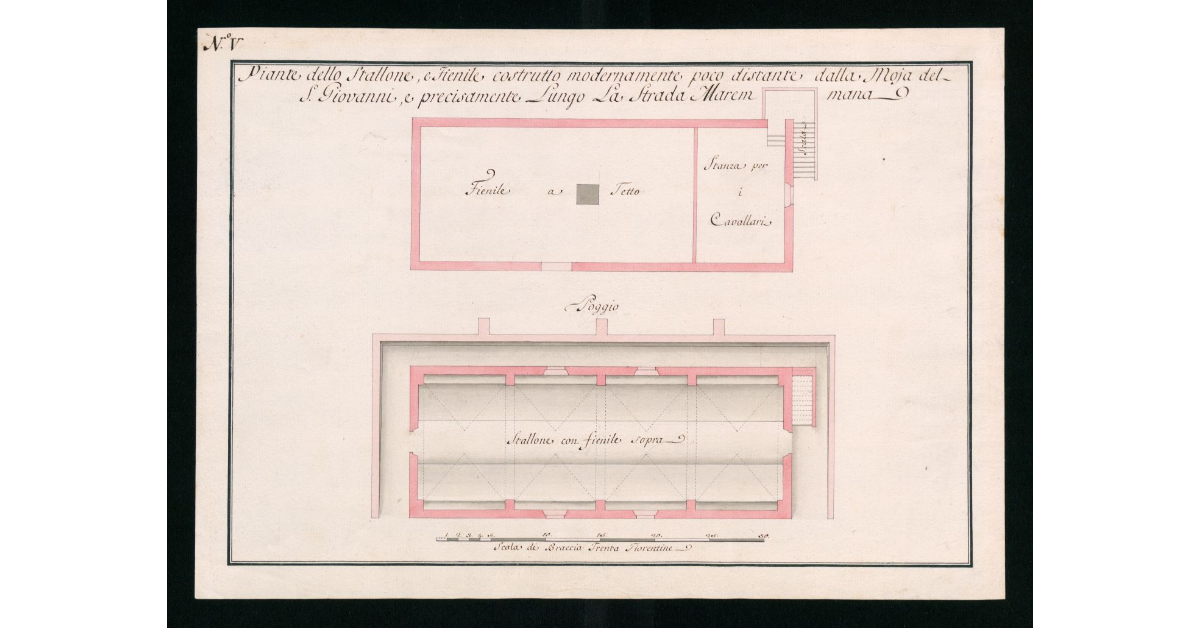 N.º V
Piante dello Stallone, e Fienile costrutto modernamente poco distante dalla Moja del
S. Giovanni, e precisamente Lungo La Strada Marem mana
Scala
Stanza per
Fienile a Tetto
i
Cavallari
Poggio
Stallone con fienile sopra
1 2 3 4 5 10 15 20 25 30
Scala di Braccia Trenta Fiorentine